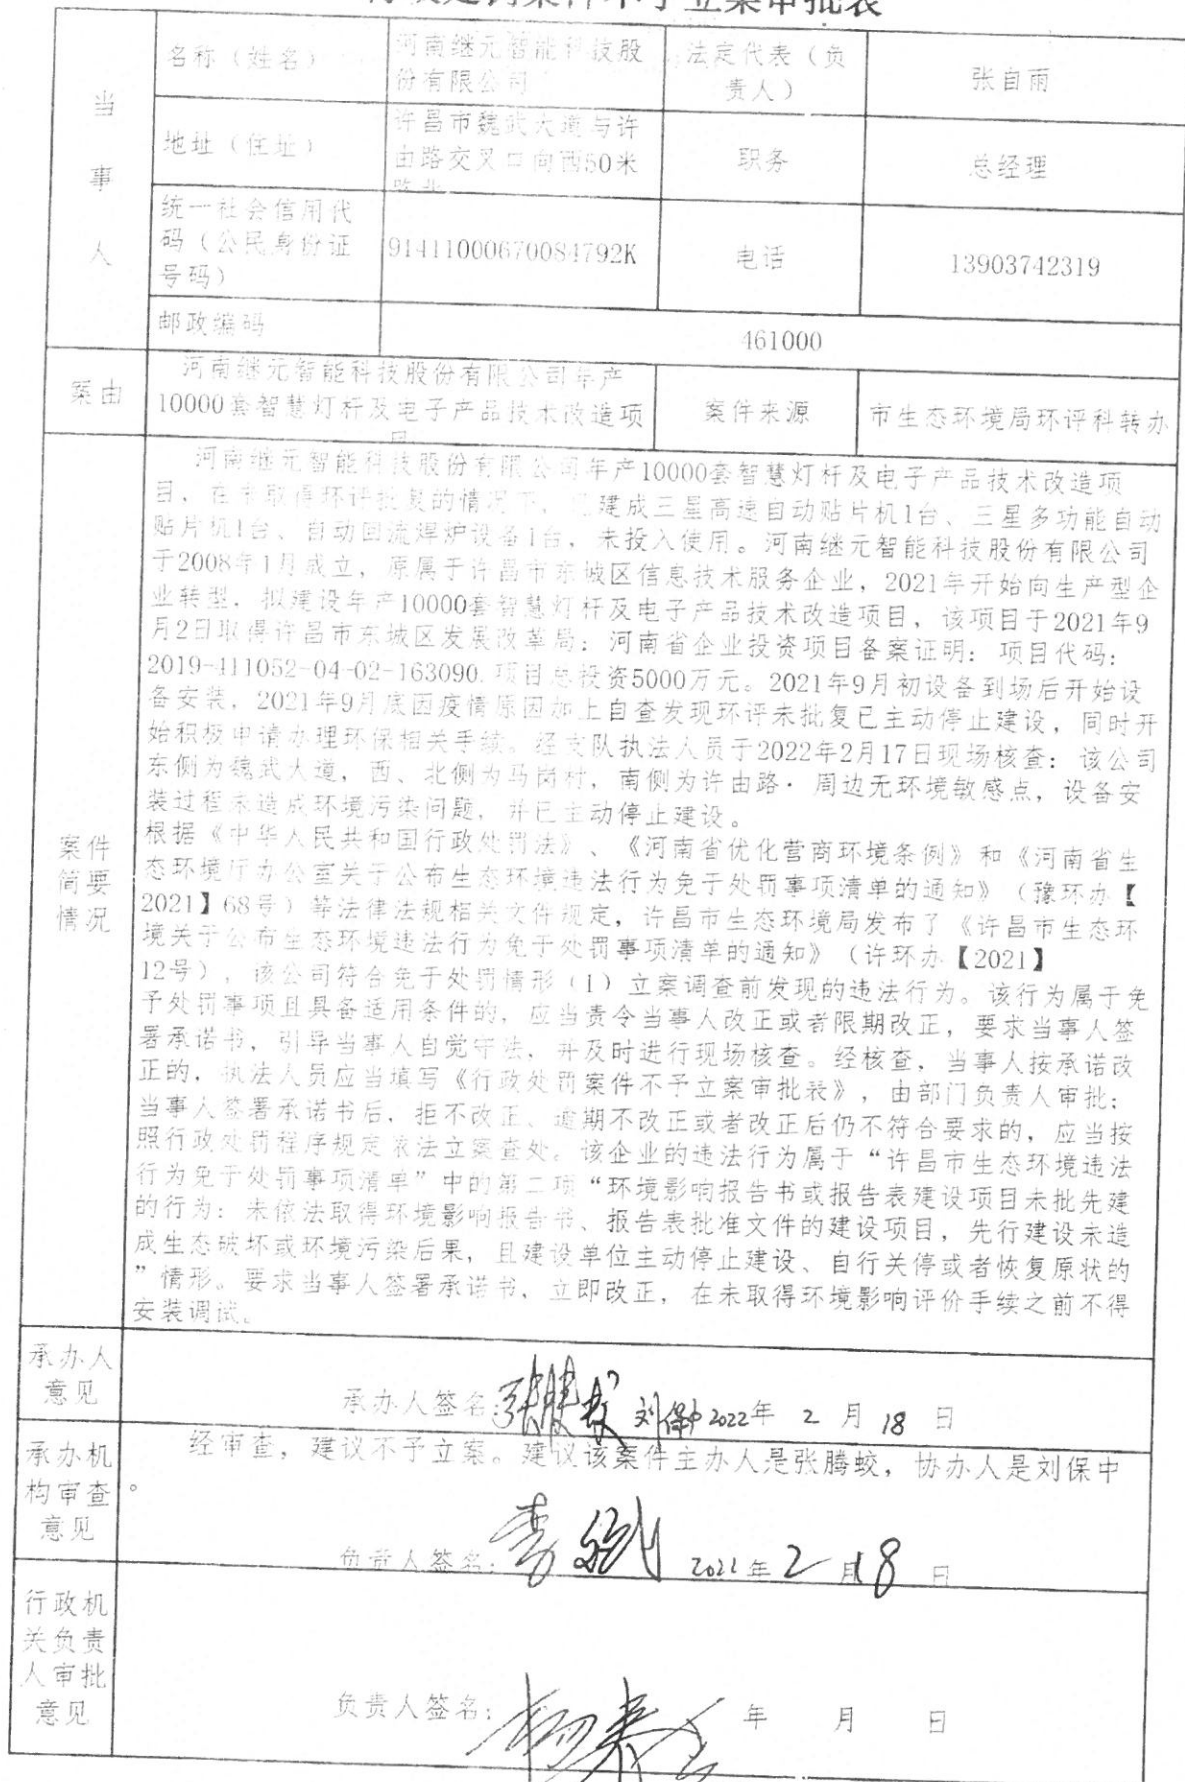 行政处罚案件不予立案审批表
当事人
名称（姓名）
河南继元智能科技股
份有限公司
法定代表（负
责人）
张自雨
地址（住址）
许昌市魏武大道与许
由路交叉口向西50米
路北
职务
总经理
统一社会信用代
码（公民身份证
号码）
91411000670084792K
电话
13903742319
邮政编码
461000
案由
河南继元智能科技股份有限公司年产
10000套智慧灯杆及电子产品技术改造项
目
案件来源
市生态环境局环评科转办
案件
简要
情况
河南继元智能科技股份有限公司年产10000套智慧灯杆及电子产品技术改造项
目，在未取得环评批复的情况下，已建成三星高速自动贴片机1台、三星多功能自动
贴片机1台、自动回流焊炉设备1台，未投入使用。河南继元智能科技股份有限公司
于2008年1月成立，原属于许昌市东城区信息技术服务企业，2021年开始向生产型企
业转型，拟建设年产10000套智慧灯杆及电子产品技术改造项目，该项目于2021年9
月2日取得许昌市东城区发展改革局：河南省企业投资项目备案证明：项目代码：
2019-411052-04-02-163090,项目总投资5000万元。2021年9月初设备到场后开始设
备安装，2021年9月底因疫情原因加上自查发现环评未批复已主动停止建设，同时开
始积极申请办理环保相关手续。经支队执法人员于2022年2月17日现场核查：该公司
东侧为魏武大道，西、北侧为马岗村，南侧为许由路·周边无环境敏感点，设备安
装过程未造成环境污染问题，并已主动停止建设。
根据《中华人民共和国行政处罚法》、《河南省优化营商环境条例》和《河南省生
态环境厅办公室关于公布生态环境违法行为免于处罚事项清单的通知》（豫环办【
2021】68号）等法律法规相关文件规定，许昌市生态环境局发布了《许昌市生态环
境关于公布生态环境违法行为免于处罚事项清单的通知》（许环办【2021】
12号），该公司符合免于处罚情形（1）立案调查前发现的违法行为。该行为属于免
予处罚事项且具备适用条件的，应当责令当事人改正或者限期改正，要求当事人签
署承诺书，引导当事人自觉守法，并及时进行现场核查。经核查，当事人按承诺改
正的，执法人员应当填写《行政处罚案件不予立案审批表》，由部门负责人审批；
当事人签署承诺书后，拒不改正、逾期不改正或者改正后仍不符合要求的，应当按
照行政处罚程序规定依法立案查处。该企业的违法行为属于“许昌市生态环境违法
行为免于处罚事项清单”中的第二项“环境影响报告书或报告表建设项目未批先建
的行为：未依法取得环境影响报告书、报告表批准文件的建设项目，先行建设未造
成生态破坏或环境污染后果，且建设单位主动停止建设、自行关停或者恢复原状的
”情形。要求当事人签署承诺书，立即改正，在未取得环境影响评价手续之前不得
安装调试。
承办人
意见
承办人签名：张腾蛟 刘保中 2022年 2 月 18 日
承办机
构审查
意见
经审查，建议不予立案。建议该案件主办人是张腾蛟，协办人是刘保中
。
负责人签名： 2022年 2 月 18 日
行政机
关负责
人审批
意见
负责人签名： 年 月 日